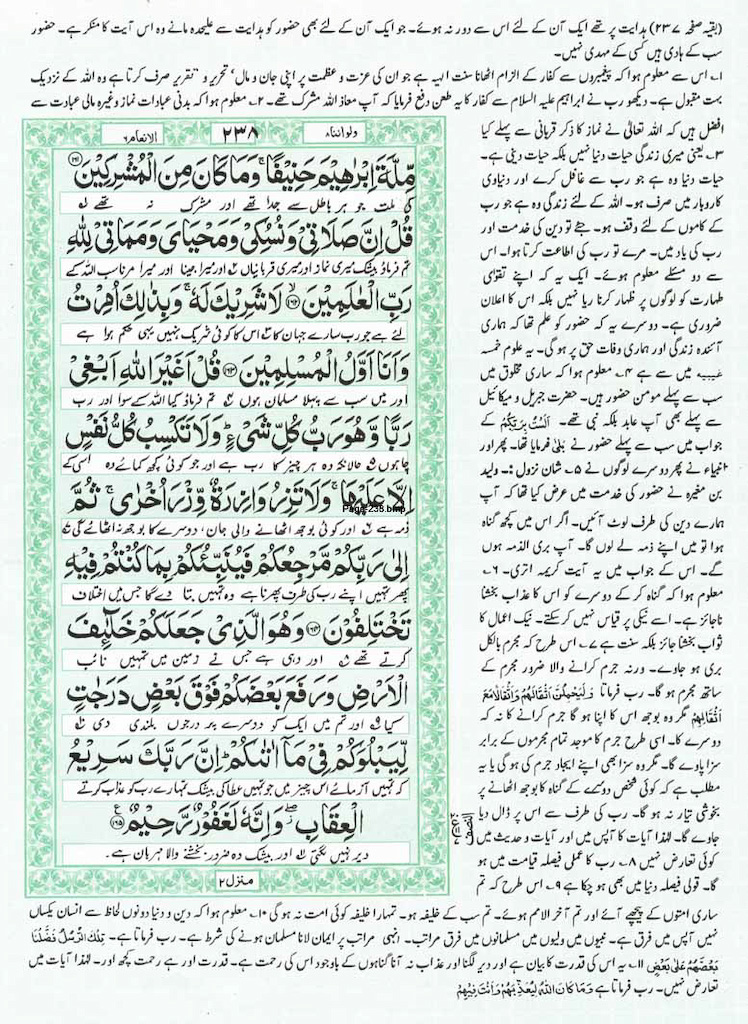 (بقیہ صفحہ ۲۳۷) ہدایت پر تھے ایک آن کے لئے اس سے دور نہ ہوئے۔ جو ایک آن کے لئے بھی حضور کو ہدایت سے علیحدہ مانے وہ اس آیت کا منکر ہے۔ حضور
سب کے ہادی ہیں کسی کے مہدی نہیں۔
۱۔ اس سے معلوم ہوا کہ پیغمبروں سے کفار کے الزام اٹھانا سنت الٰہیہ ہے جو ان کی عزت و عظمت پر اپنی جان و مال' تحریر و تقریر صرف کرتا ہے وہ اللہ کے نزدیک
بہت مقبول ہے۔ دیکھو رب نے ابراہیم علیہ السلام سے کفار کا یہ طعن دفع فرمایا کہ آپ معاذ اللہ مشرک تھے۔ ۲۔ معلوم ہوا کہ بدنی عبادات نماز وغیرہ مالی عبادت سے
افضل ہیں کہ اللہ تعالیٰ نے نماز کا ذکر قربانی سے پہلے کیا
۳۔ یعنی میری زندگی حیات دنیا نہیں بلکہ حیات دینی ہے۔
حیات دنیا وہ ہے جو رب سے غافل کرے اور دنیاوی
کاروبار میں صرف ہو۔ اللہ کے لئے زندگی وہ ہے جو رب
کے کاموں کے لئے وقف ہو۔ جئے تو دین کی خدمت اور
رب کی یاد میں۔ مرے تو رب کی اطاعت کرتا ہوا۔ اس
سے دو مسئلے معلوم ہوئے۔ ایک یہ کہ اپنے تقویٰ
طہارت کو لوگوں پر ظہار کرنا ریا نہیں بلکہ اس کا اعلان
ضروری ہے۔ دوسرے یہ کہ حضور کو علم تھا کہ ہماری
آئندہ زندگی اور ہماری وفات حق پر ہوگی۔ یہ علوم خمسہ
غیبیہ میں سے ہے ۴۔ معلوم ہوا کہ ساری مخلوق میں
سب سے پہلے مومن حضور ہیں۔ حضرت جبریل و میکائیل
سے پہلے بھی آپ عابد بلکہ نبی تھے۔ اَلَسْتُ بِرَبِّكُمْ کے
جواب میں سب سے پہلے حضور نے بلیٰ فرمایا تھا۔ پھر اور
انبیاء نے پھر دوسرے لوگوں نے ۵۔ شان نزول :۔ ولید
بن مغیرہ نے حضور کی خدمت میں عرض کیا تھا کہ آپ
ہمارے دین کی طرف لوٹ آئیں۔ اگر اس میں کچھ گناہ
ہوا تو میں اپنے ذمہ لے لوں گا۔ آپ بری الذمہ ہوں
گے۔ اس کے جواب میں یہ آیت کریمہ اتری۔ ۶۔
معلوم ہوا کہ گناہ کر کے دوسرے کو اس کا عذاب بخشنا
ناجائز ہے۔ اسے نیکی پر قیاس نہیں کر سکتے۔ نیک اعمال کا
ثواب بخشنا جائز بلکہ سنت ہے ۷۔ اس طرح کہ مجرم بالکل
بری ہو جاوے۔ ورنہ جرم کرانے والا ضرور مجرم کے
ساتھ مجرم ہو گا۔ رب فرماتا وَلَيَحْمِلُنَّ اَثْقَالَهُمْ وَاَثْقَالًا مَّعَ
اَثْقَالِهِمْ مگر وہ بوجھ اس کا اپنا ہو گا جرم کرانے کا نہ کہ
دوسرے کا۔ اسی طرح جرم کا موجد تمام مجرموں کے برابر
سزا پاوے گا۔ مگر وہ سزا بھی اپنے ایجاد جرم کی ہو گی یا یہ
مطلب ہے کہ کوئی شخص دوسرے کے گناہ کا بوجھ اٹھانے پر
بخوشی تیار نہ ہو گا۔ رب کی طرف سے اس پر ڈال دیا
جاوے گا۔ لہٰذا آیات کا آپس میں اور آیات و حدیث میں
کوئی تعارض نہیں ۸۔ رب کا عملی فیصلہ قیامت میں ہو
گا۔ قولی فیصلہ دنیا میں بھی ہو چکا ہے ۹۔ اس طرح کہ تم
ولواننا ۸
۲۳۸
الانعام ۶
مِّلَّةَ اِبْرٰهِيْمَ حَنِيْفًا ۚ وَمَا كَانَ مِنَ الْمُشْرِكِيْنَ ۝۱۶۱
کی ملت جو ہر باطل سے جدا تھے اور مشرک نہ تھے
قُلْ اِنَّ صَلَاتِيْ وَنُسُكِيْ وَمَحْيَايَ وَمَمَاتِيْ لِلّٰهِ
تم فرماؤ بیشک میری نماز اور میری قربانیاں اور میرا جینا اور میرا مرنا سب اللہ کے
رَبِّ الْعٰلَمِيْنَ ۝۱۶۲ لَا شَرِيْكَ لَهٗ ۚ وَبِذٰلِكَ اُمِرْتُ
لئے ہے جو رب سارے جہان کا اس کا کوئی شریک نہیں یہی حکم ہوا ہے
وَاَنَا اَوَّلُ الْمُسْلِمِيْنَ ۝۱۶۳ قُلْ اَغَيْرَ اللّٰهِ اَبْغِيْ
اور میں سب سے پہلا مسلمان ہوں تم فرماؤ کیا اللہ کے سوا اور رب
رَبًّا وَّهُوَ رَبُّ كُلِّ شَيْءٍ ۚ وَلَا تَكْسِبُ كُلُّ نَفْسٍ
چاہوں حالانکہ وہ ہر چیز کا رب ہے اور جو کوئی کچھ کمائے وہ اسی کے
اِلَّا عَلَيْهَا ۚ وَلَا تَزِرُ وَازِرَةٌ وِّزْرَ اُخْرٰى ۚ ثُمَّ
Page-238.bmp
ذمہ ہے اور کوئی بوجھ اٹھانے والی جان، دوسرے کا بوجھ نہ اٹھائے گی
اِلٰى رَبِّكُمْ مَّرْجِعُكُمْ فَيُنَبِّئُكُمْ بِمَا كُنْتُمْ فِيْهِ
پھر تمہیں اپنے رب کی طرف پھرنا ہے وہ تمہیں بتا دے گا جس میں اختلاف
تَخْتَلِفُوْنَ ۝۱۶۴ وَهُوَ الَّذِيْ جَعَلَكُمْ خَلٰٓئِفَ
کرتے تھے اور وہی ہے جس نے زمین میں تمہیں نائب
الْاَرْضِ وَرَفَعَ بَعْضَكُمْ فَوْقَ بَعْضٍ دَرَجٰتٍ
کیا اور تم میں ایک کو دوسرے پر درجوں بلندی دی
لِّيَبْلُوَكُمْ فِيْ مَآ اٰتٰىكُمْ ۭ اِنَّ رَبَّكَ سَرِيْعُ
کہ تمہیں آزمائے اس چیز میں جو تمہیں عطا کی بیشک تمہارے رب کو عذاب کرتے
الْعِقَابِ ۖ وَاِنَّهٗ لَغَفُوْرٌ رَّحِيْمٌ ۝۱۶۵
دیر نہیں لگتی اور بیشک وہ ضرور بخشنے والا مہربان ہے۔
منزل ۲
ساری امتوں کے پیچھے آئے اور تم آخر الامم ہوئے۔ تم سب کے خلیفہ ہو۔ تمہارا خلیفہ کوئی امت نہ ہو گی ۱۰۔ معلوم ہوا کہ دین و دنیا دونوں لحاظ سے انسان یکساں
نہیں آپس میں فرق ہے۔ نبیوں میں ولیوں میں مسلمانوں میں فرق مراتب۔ انہی مراتب پر ایمان لانا مسلمان ہونے کی شرط ہے۔ رب فرماتا ہے۔ تِلْكَ الرُّسُلُ فَضَّلْنَا
بَعْضَهُمْ عَلٰى بَعْضٍ ۱۱۔ یہ اس کی قدرت کا بیان ہے اور دیر لگنا اور عذاب نہ آنا گناہوں کے باوجود اس کی رحمت ہے۔ قدرت اور ہے رحمت کچھ اور۔ لہٰذا آیات میں
تعارض نہیں۔ رب فرماتا ہے وَمَا كَانَ اللّٰهُ لِيُعَذِّبَهُمْ وَاَنْتَ فِيْهِمْ